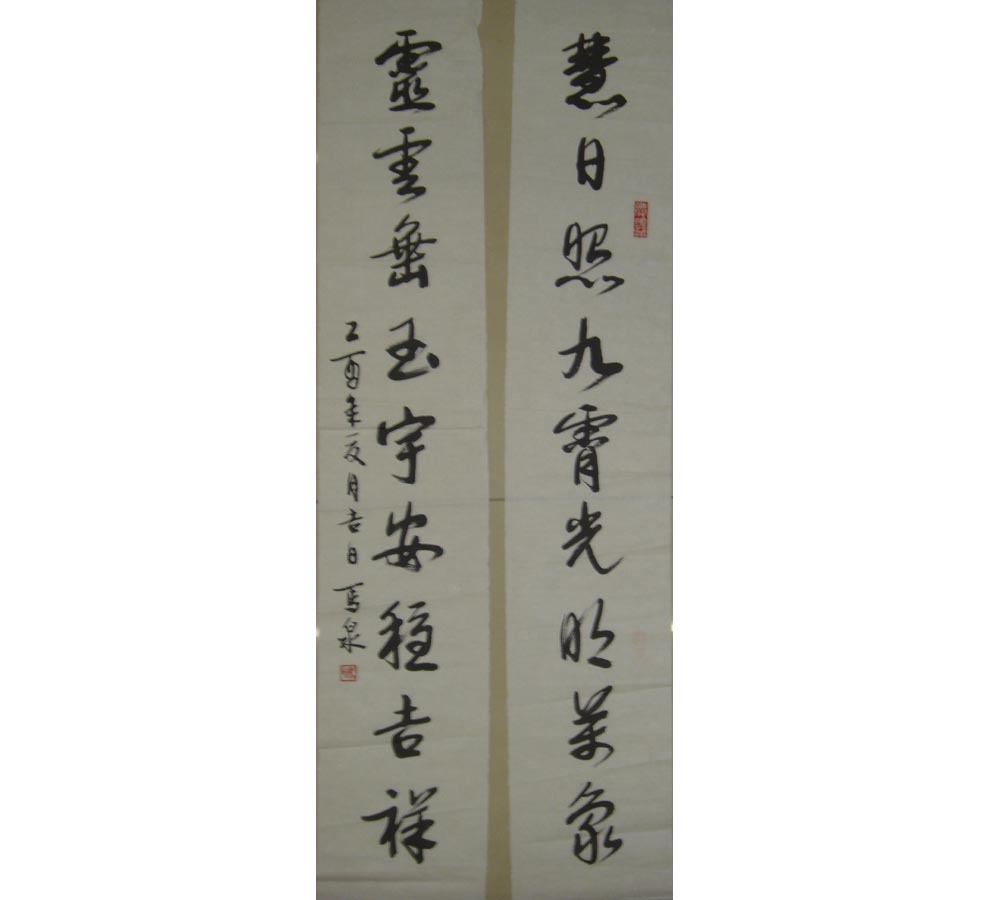 慧日照九霄光明萬象
靈雲垂玉宇安穩吉祥
乙酉年夏月吉日 馬泉